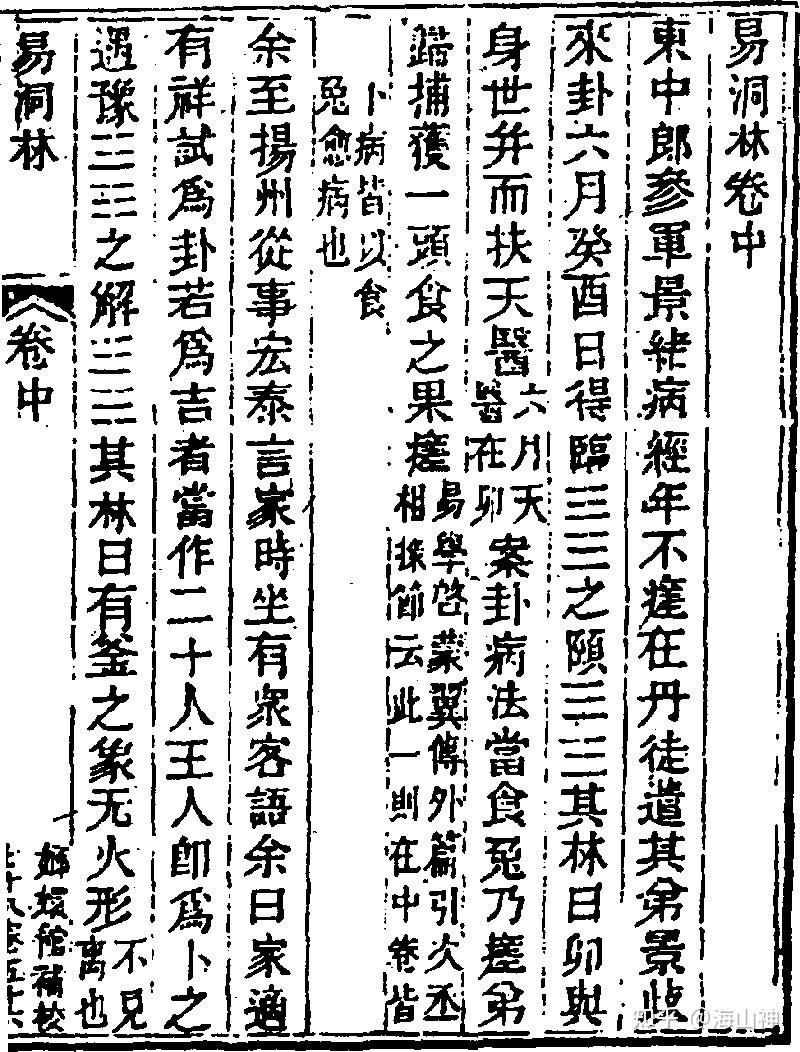 易洞林卷中
東中郎參軍景緒病經年不瘥在丹徒遣其弟景岐
來卦六月癸酉日得臨☷☱之頤☶☳其林曰卯與
身世并而扶天醫六月天醫在卯案卦病法當食兔乃瘥弟
歸捕獲一頭食之果瘥易學啓蒙翼傳外篇引次丞相掾節云此一則在中卷皆
卜病皆以食兔愈病也
余至揚州從事宏泰言家時坐有衆客語余曰家適
有祥試爲卦若爲吉者當作二十人王人卽爲卜之
遇豫☳☷之解☳☵其林曰有釜之象无火形不見離也
易洞林
卷中
嫏嬛館補校
知乎 @海山神